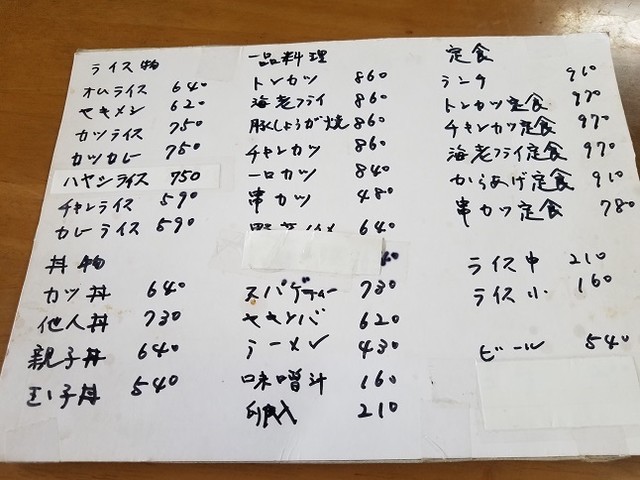 ライス物
オムライス 640
ヤキメシ 620
カツライス 750
カツカレー 750
ハヤシライス 750
チキンライス 590
カレーライス 590
丼物
カツ丼 640
他人丼 730
親子丼 640
玉子丼 540
一品料理
トンカツ 860
海老フライ 860
豚しょうが焼 860
チキンカツ 860
一口カツ 840
串カツ 480
野菜イタメ 640
60
スパゲティー 730
ヤキソバ 620
ラーメン 430
味噌汁 160
卵入 210
定食
ランチ 910
トンカツ定食 970
チキンカツ定食 970
海老フライ定食 970
からあげ定食 910
串カツ定食 780
ライス中 210
ライス小 160
ビール 540